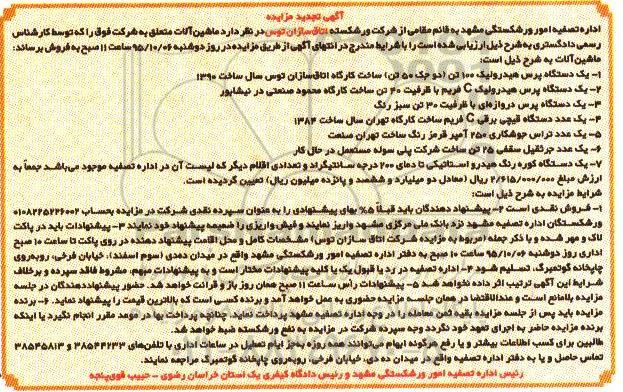 آگهی تجدید مزایده
اداره تصفیه امور ورشکستگی مشهد به قائم مقامی از شرکت ورشکسته اتاق‌سازان توس در نظر دارد ماشین‌آلات متعلق به شرکت فوق را که توسط کارشناس
رسمی دادگستری به شرح ذیل ارزیابی شده است را با شرایط مندرج در انتهای آگهی از طریق مزایده در روز دوشنبه ۹۵/۱۰/۰۶ ساعت ۱۱ صبح به فروش برساند:
ماشین‌آلات به شرح ذیل است:
۱- یک دستگاه پرس هیدرولیک ۱۰۰ تن (دو جک ۵۰ تن) ساخت کارگاه اتاق‌سازان توس سال ساخت ۱۳۹۰
۲- یک دستگاه پرس هیدرولیک C فریم با ظرفیت ۴۰ تن ساخت کارگاه محمود صنعتی در نیشابور
۳- یک دستگاه پرس دروازه‌ای با ظرفیت ۳۰ تن سبز رنگ
۴- یک عدد دستگاه قیچی برقی C فریم ساخت کارگاه تهران سال ساخت ۱۳۸۴
۵- یک عدد ترانس جوشکاری ۲۵۰ آمپر قرمز رنگ ساخت تهران صنعت
۶- یک عدد جرثقیل سقفی ۲۵ تن ساخت شرکت پلی سوله مستعمل در حال کار
۷- یک دستگاه کوره رنگ هیدرو استاتیکی تا دمای ۲۰۰ درجه سانتیگراد و تعدادی اقلام دیگر که لیست آن در اداره تصفیه موجود می‌باشد جمعاً به
ارزش مبلغ ۲/۶۱۵/۰۰۰/۰۰۰ ریال (معادل دو میلیارد و ششصد و پانزده میلیون ریال) تعیین گردیده است.
شرایط مزایده به شرح ذیل است:
۱- فروش نقدی است ۲- پیشنهاد دهندگان باید قبلاً ۵% بهای پیشنهادی را به عنوان سپرده نقدی شرکت در مزایده بحساب ۰۱۰۸۲۲۵۲۲۶۰۰۲
ورشکستگان اداره تصفیه مشهد نزد بانک ملی مرکزی مشهد واریز نمایند و فیش واریزی را ضمیمه پیشنهاد خود نمایند ۳- پیشنهادات باید در پاکت
لاک و مهر شده و با ذکر جمله (مربوط به مزایده شرکت اتاق سازان توس) مشخصات کامل و محل اقامت پیشنهاد دهنده در روی پاکت تا ساعت ۱۰ صبح
اداری روز دوشنبه ۹۵/۱۰/۰۶ ساعت ۱۰ صبح به دفتر اداره تصفیه امور ورشکستگی مشهد واقع در میدان ده‌دی (سوم اسفند)، خیابان فرخی، روبه‌روی
چاپخانه گوتمبرگ، تسلیم شود ۴- اداره تصفیه در رد یا قبول یک یا کلیه پیشنهادات مختار است و به پیشنهادات مبهم، مشروط فاقد سپرده و برخلاف
شرایط این آگهی ترتیب اثر داده نخواهد شد ۵- پیشنهادات رأس ساعت ۱۱ صبح همان روز باز و قرائت خواهد شد. حضور پیشنهاددهندگان در جلسه
مزایده بلامانع است و عنداالاقتضا در همان جلسه مزایده حضوری به عمل خواهد آمد و برنده کسی است که بالاترین قیمت را پیشنهاد نماید. ۶- برنده
مزایده باید پس از جلسه مزایده بقیه ثمن معامله را در وجه اداره تصفیه مشهد پرداخت نماید. چنانچه پرداخت بها در موعد مقرر انجام نگیرد یا اینکه
برنده مزایده حاضر به اجرای تعهد خود نگردد وجه سپرده شرکت در مزایده به نفع ورشکسته ضبط خواهد شد.
طالبین برای کسب اطلاعات بیشتر و یا رفع هرگونه ابهام می‌توانند همه روزه بجز ایام تعطیل در ساعات اداری با تلفن‌های ۳۸۵۴۴۲۳۳ و ۳۸۵۴۵۸۱۳
تماس حاصل و یا به دفتر اداره تصفیه واقع در میدان ده دی، خیابان فرخی، روبه‌روی چاپخانه گوتمبرگ مراجعه نمایند.
رئیس اداره امور ورشکستگی مشهد و رئیس دادگاه کیفری یک استان خراسان رضوی - حبیب قوی‌پنجه